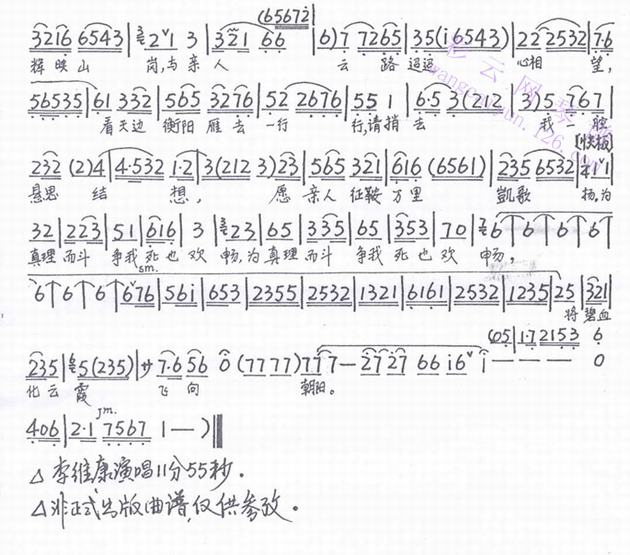 (65672̇
3216 6543 | 3/2 1 3 | 321 6 6 | 6) 7 7265 | 35 (i 6543) | 22 2532 | 7·6
辉映山 岗,与 亲人 云 路迢迢 心相 望,
56535 | 61 332 | 565 3276 | 52 2676 | 55 1 | 6·5 3(212 3) 5 767 |
看天边 衡阳 雁去 一行 行,请捎去 我一腔
[快板]
232 (2) 4 | 4·532 1·2 | 3 (212 3) 23 | 565 321 | 616 (6561) | 235 6532 | 41 1
恳思 结 想, 愿 亲人 征鞍 万里 凯歌 扬,为
32 | 223 | 51 | 616 | 3 | 3/23 | 65 | 335 | 65 | 353 | 70 | 7/6 6 6 6 6
真理 而斗 争我 死也欢 畅,为 真理 而斗 争我 死也欢 畅,
sm.
6 6 6 6 | 676 | 561 | 653 | 2355 | 2532 | 1321 | 6161 | 2532 | 1235 | 25 | 321
将 碧血
(05 | 1·7 2153 6
235 | 6/5 (235) | サ 7·6 56 0 (77 77) 777 — 27 27 66 i6 i — — — 0
化云 霞 飞向 朝阳。
sm.
406 | 2·1 7567 1 — )
△ 李维康演唱11分55秒.
△ 非正式出版曲谱,仅供参改。
彩云网